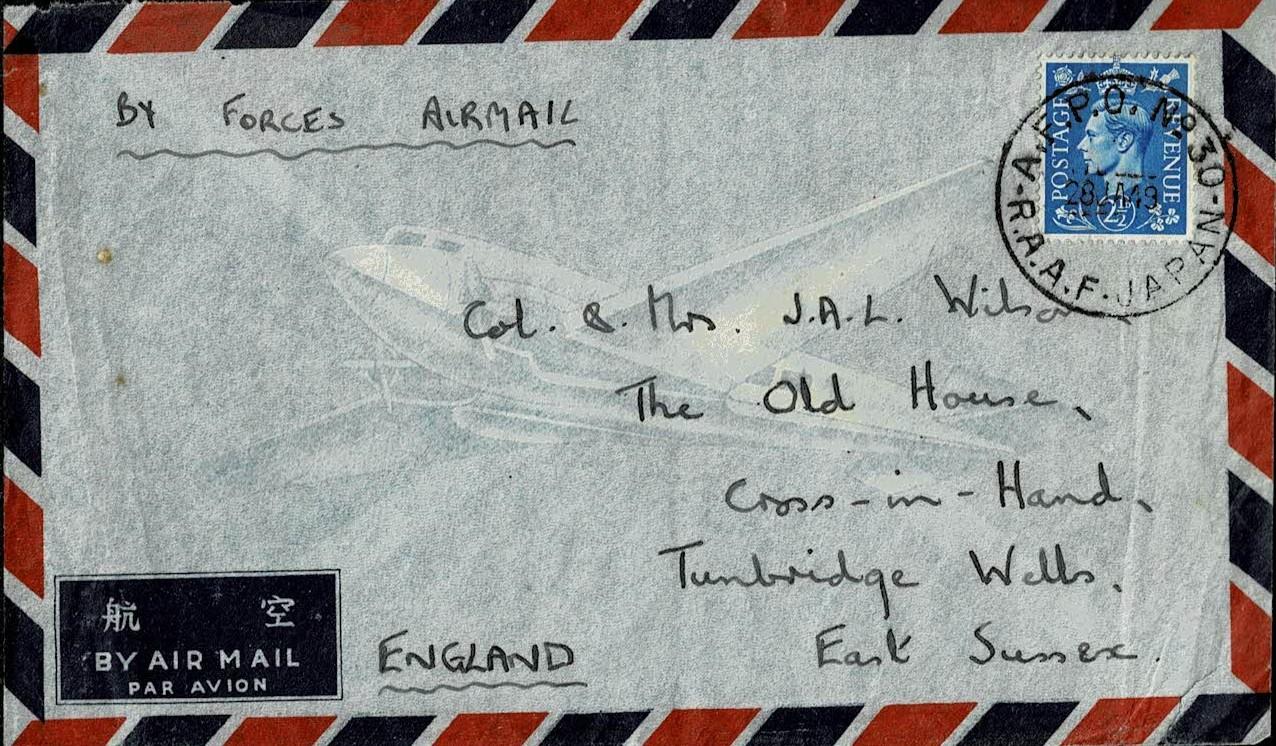 BY FORCES AIRMAIL
POSTAGE REVENUE
2½D
A.F.P.O. Nº 30
R.A.A.F. JAPAN
28 JA 49
Col. & Mrs. J.A.L. Wilson
The Old House,
Cross-in-Hand,
Tunbridge Wells,
East Sussex.
ENGLAND
航 空
BY AIR MAIL
PAR AVION